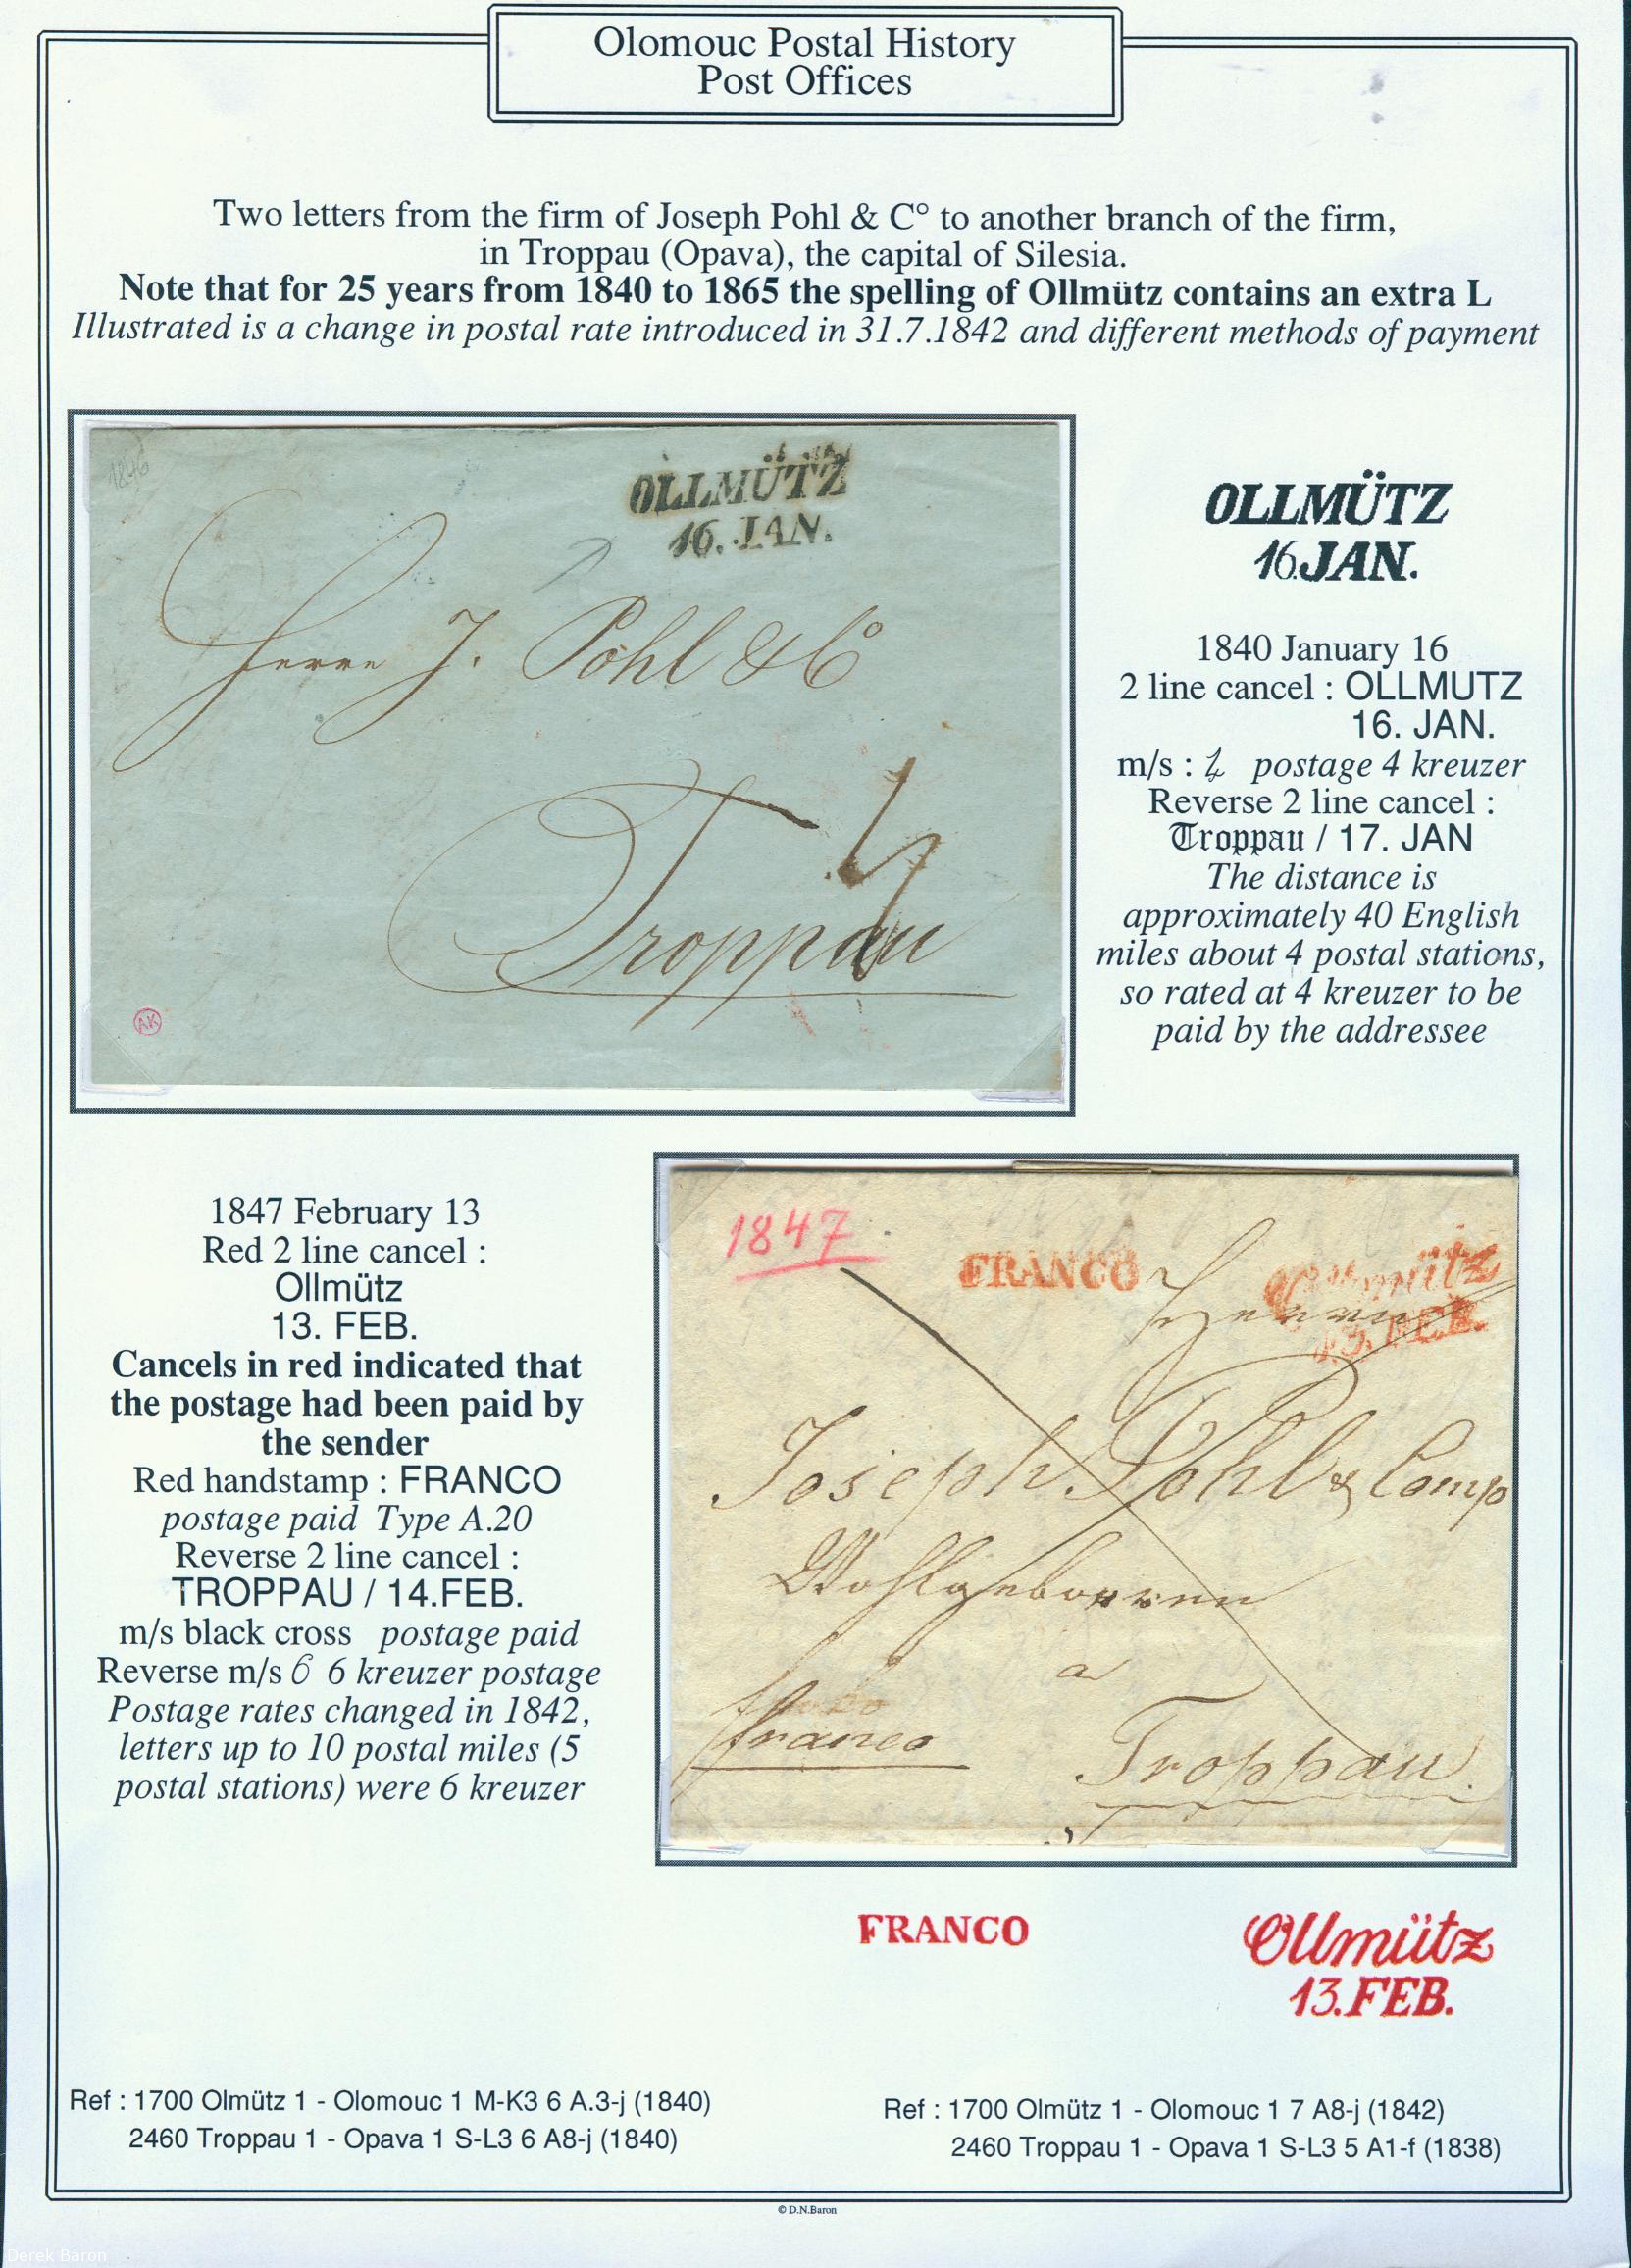 Olomouc Postal History
Post Offices
Two letters from the firm of Joseph Pohl & C° to another branch of the firm,
in Troppau (Opava), the capital of Silesia.
Note that for 25 years from 1840 to 1865 the spelling of Ollmütz contains an extra L
Illustrated is a change in postal rate introduced in 31.7.1842 and different methods of payment
OLLMÜTZ
16. JAN.
Herrn J. Pohl & C°
4
Troppau
AK
OLLMÜTZ
16.JAN.
1840 January 16
2 line cancel : OLLMUTZ
16. JAN.
m/s : 4 postage 4 kreuzer
Reverse 2 line cancel :
Troppau / 17. JAN
The distance is
approximately 40 English
miles about 4 postal stations,
so rated at 4 kreuzer to be
paid by the addressee
1847 February 13
Red 2 line cancel :
Ollmütz
13. FEB.
Cancels in red indicated that
the postage had been paid by
the sender
Red handstamp : FRANCO
postage paid Type A.20
Reverse 2 line cancel :
TROPPAU / 14.FEB.
m/s black cross postage paid
Reverse m/s 6 6 kreuzer postage
Postage rates changed in 1842,
letters up to 10 postal miles (5
postal stations) were 6 kreuzer
1847
FRANCO
Ollmütz
13. FEB.
Herrn
Joseph Pohl & Comp
Wohlgeborren
a
franco
Troppau.
FRANCO
Ollmütz
13.FEB.
Ref : 1700 Olmütz 1 - Olomouc 1 M-K3 6 A.3-j (1840)
2460 Troppau 1 - Opava 1 S-L3 6 A8-j (1840)
Ref : 1700 Olmütz 1 - Olomouc 1 7 A8-j (1842)
2460 Troppau 1 - Opava 1 S-L3 5 A1-f (1838)
© D.N.Baron
Derek Baron